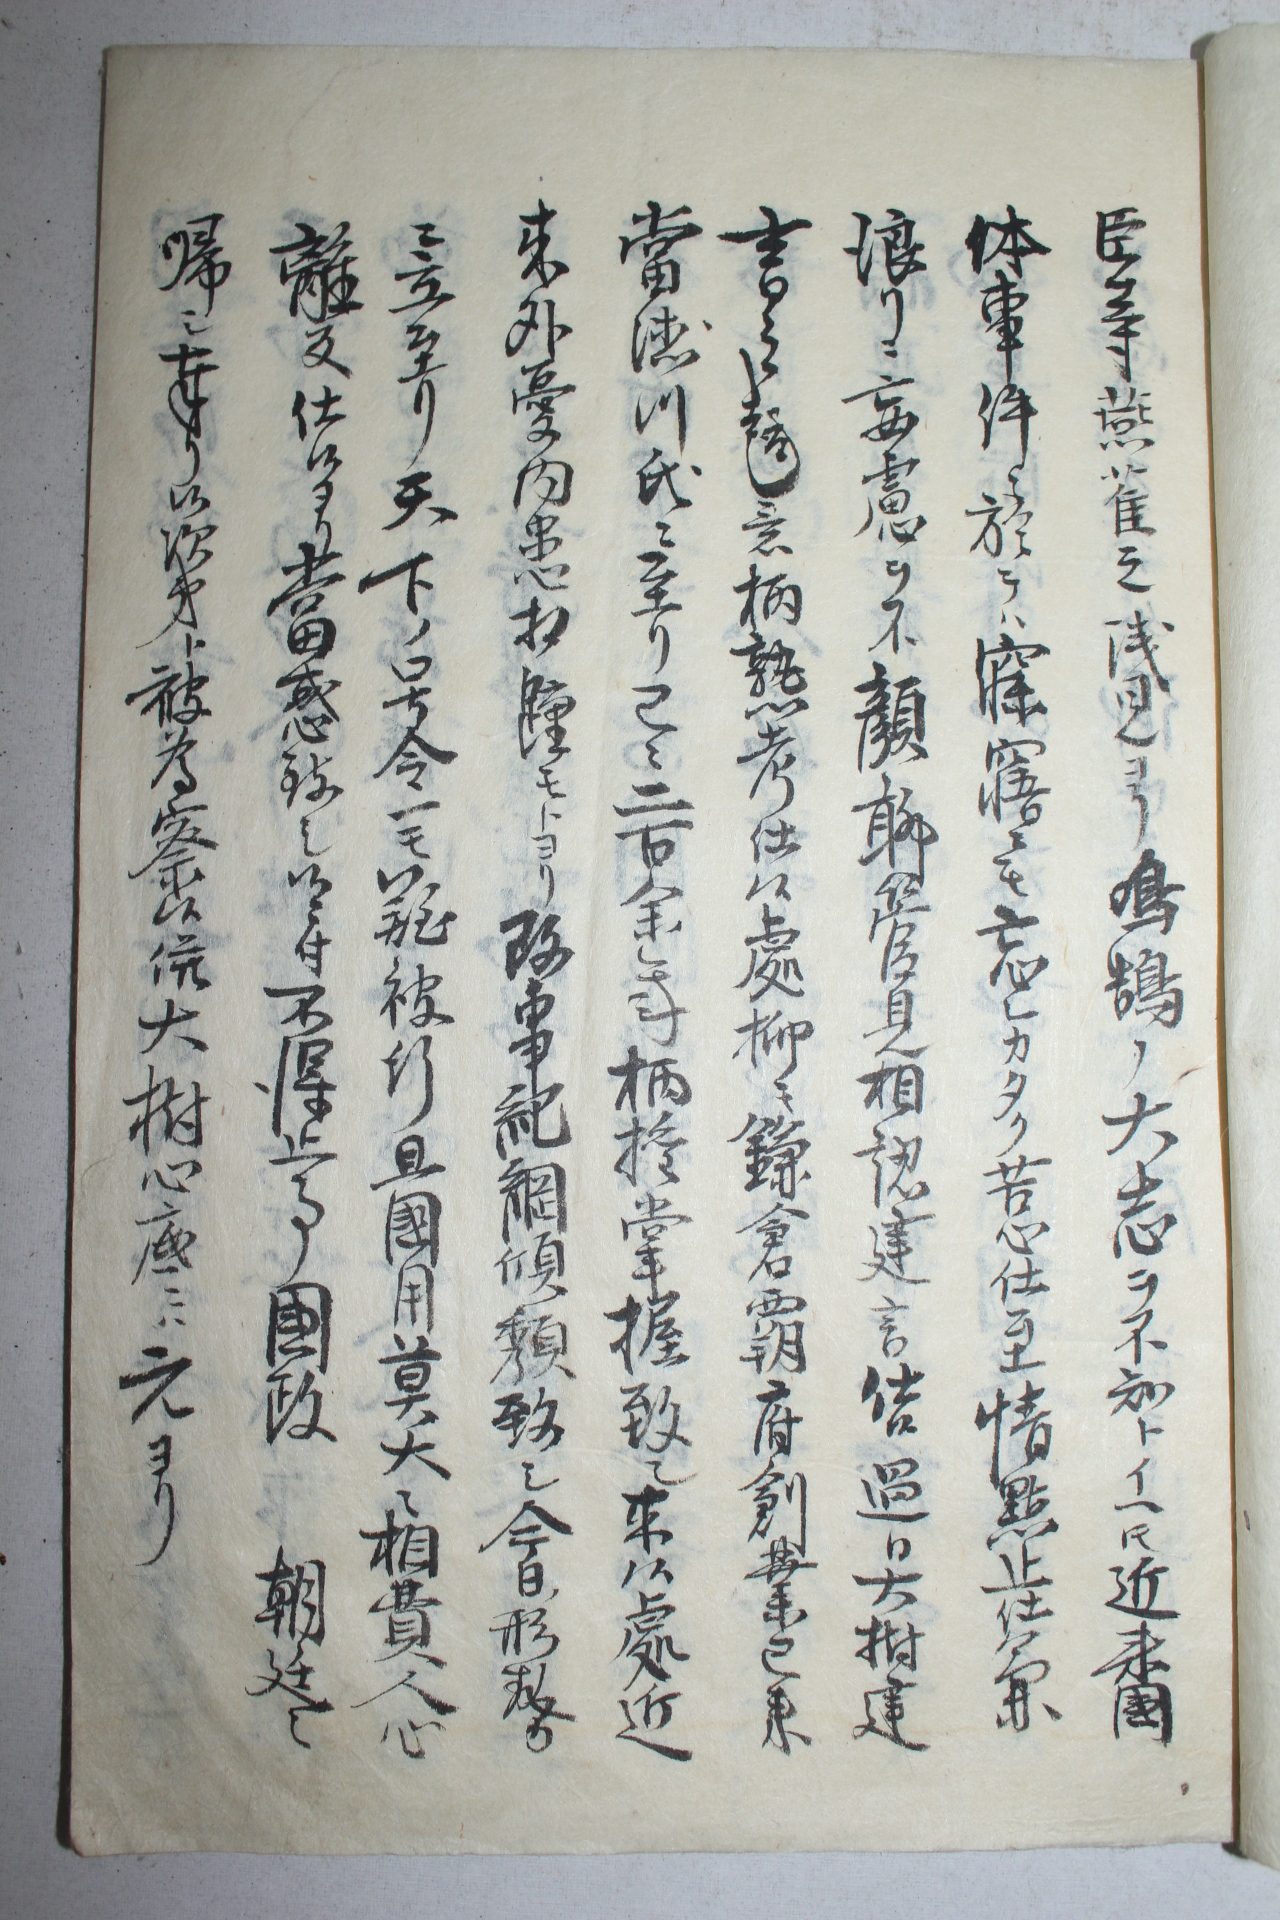 臣等燕雀之浅見ヨリ鳥鵠ノ大志ヲ不知トイヘ圧近来國
体事件ニ於テハ寐寤ニモ忘レカタク苦心仕至情黙止仕兼
浪リニ妄慮ヲ不顧聊管見相認建言仕過日大樹建
言之意柄熟考仕候處抑モ鎌倉覇府創業已来
當徳川氏ニ至リ已ニ二百余年柄権掌握致シ来候處近
来外憂内患相踵モトヨリ政事紀綱傾頽致シ今日ノ形勢
ニ立至リ天下ノ号令一モ難被行且國用莫大ニ相費人心
離叉仕候ヨリ當惑致シ候付不得止事ヨリ國政朝廷ニ
帰シ奉リ候次第ト被為察候併大樹心底ニハ元ヨリ